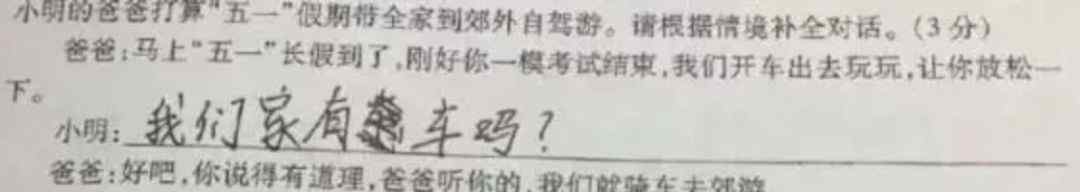 小明的爸爸打算“五一”假期带全家到郊外自驾游。请根据情境补全对话。(3分)
爸爸:马上“五一”长假到了,刚好你一模考试结束,我们开车出去玩玩,让你放松一
下。
小明:我们家有车吗?
爸爸:好吧,你说得有道理,爸爸听你的,我们就骑车去郊游